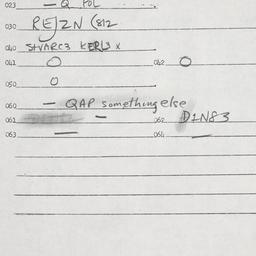 023 — Q POL
030 REJZN (812
040 SHVARC3 KERLJ x
041 O 042 O
050 O
060 — QAP something else
061 — 062 D1N83
063 — 064 —